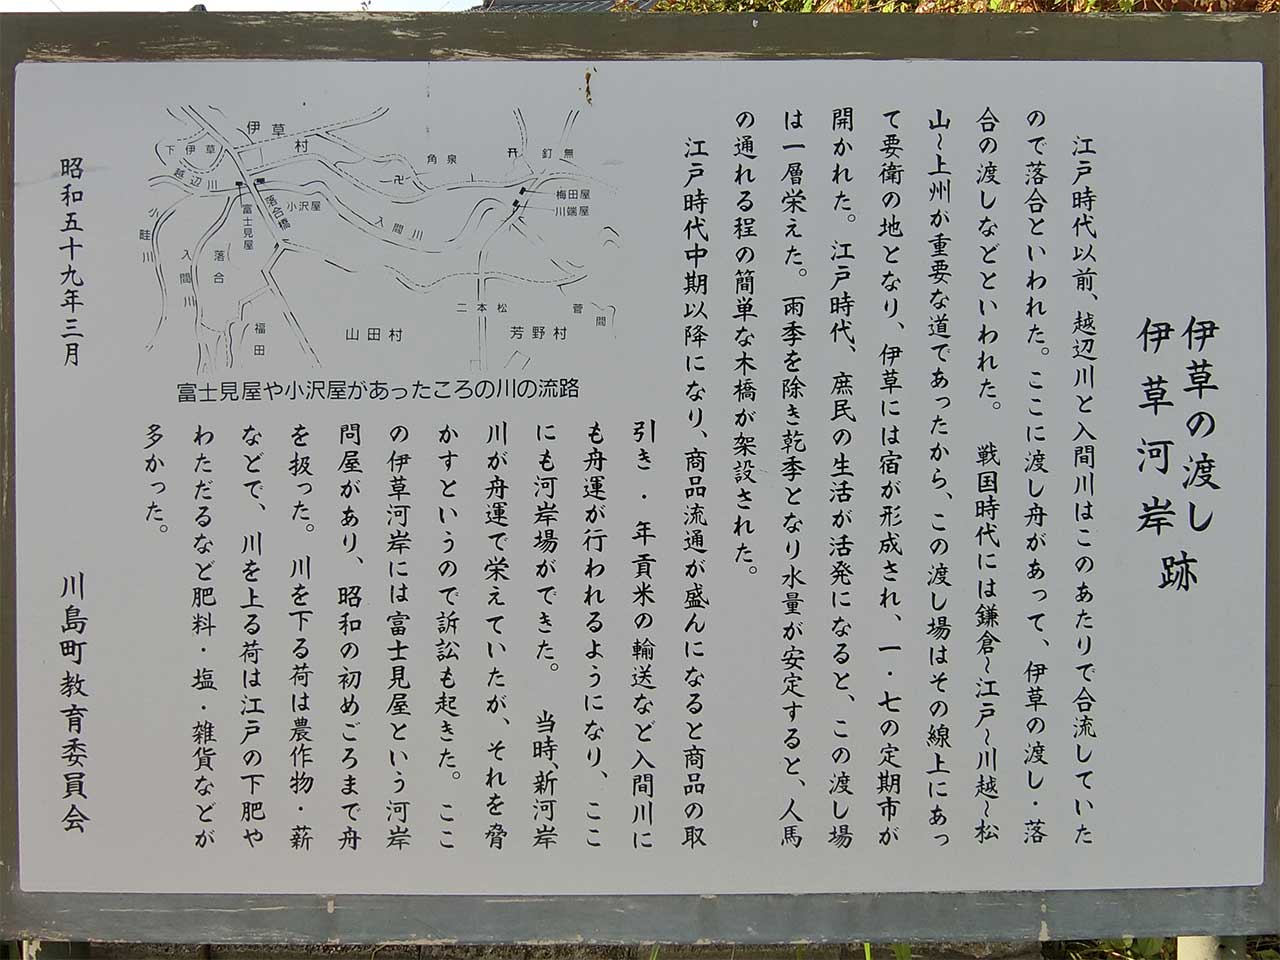 伊草の渡し
伊草河岸
跡
江戸時代以前、越辺川と入間川はこのあたりで合流していた
ので落合といわれた。ここに渡し舟があって、伊草の渡し・落
合の渡しなどといわれた。 戦国時代には鎌倉~江戸~川越~松
山~上州が重要な道であったから、この渡し場はその線上にあっ
て要衛の地となり、伊草には宿が形成され、一・七の定期市が
開かれた。江戸時代、庶民の生活が活発になると、この渡し場
は一層栄えた。雨季を除き乾季となり水量が安定すると、人馬
の通れる程の簡単な木橋が架設された。
江戸時代中期以降になり、商品流通が盛んになると商品の取
引き・年貢米の輸送など入間川に
も舟運が行われるようになり、ここ
にも河岸場ができた。 当時、新河岸
川が舟運で栄えていたが、それを脅
かすというので訴訟も起きた。ここ
の伊草河岸には富士見屋という河岸
問屋があり、昭和の初めごろまで舟
を扱った。川を下る荷は農作物・薪
などで、川を上る荷は江戸の下肥や
わただるなど肥料・塩・雑貨などが
多かった。
昭和五十九年三月
川島町教育委員会
伊草村
下伊草
越辺川
小畦川
入間川
落合
富士見屋
落合橋
小沢屋
入間川
角泉
卍
釘無
梅田屋
川端屋
二本松
菅間
福田
山田村
芳野村
富士見屋や小沢屋があったころの川の流路